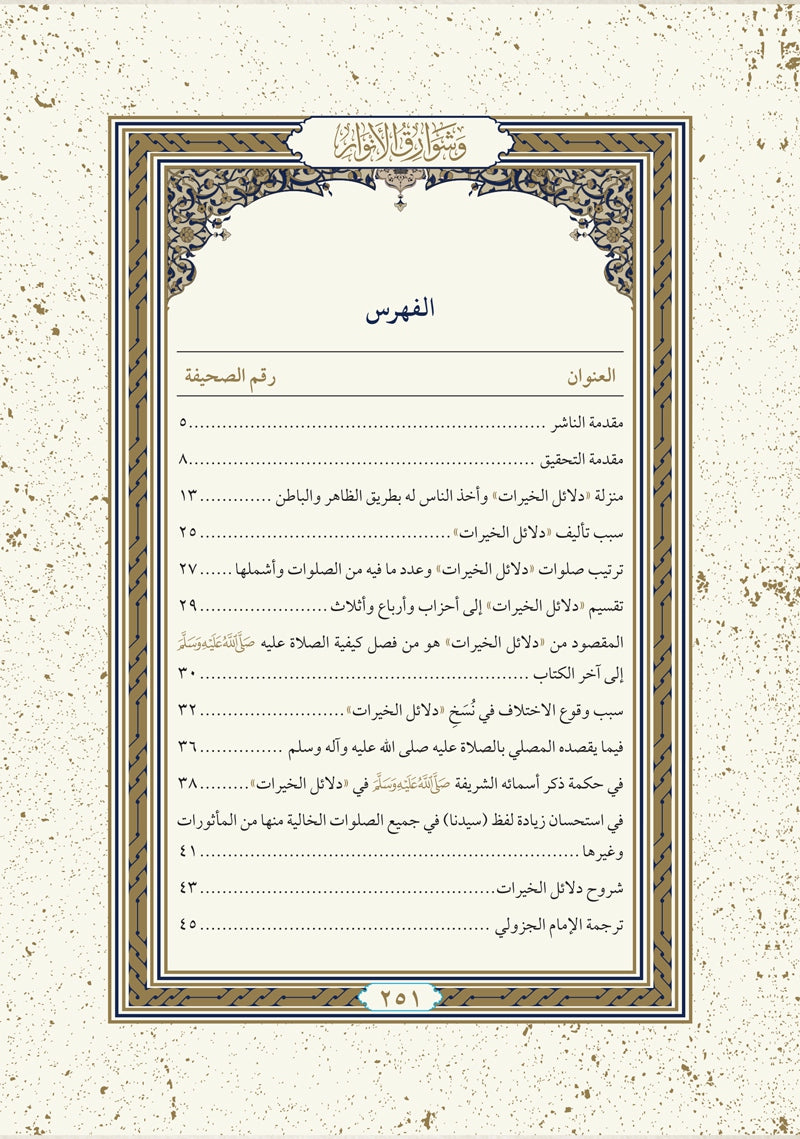 وَشَوَارِقُ الأَنْوَار
الفهرس
العنوان رقم الصحيفة
مقدمة الناشر ........................................................ ٥
مقدمة التحقيق ........................................................ ٨
منزلة «دلائل الخيرات» وأخذ الناس له بطريق الظاهر والباطن ............. ١٣
سبب تأليف «دلائل الخيرات» ............................................. ٢٥
ترتيب صلوات «دلائل الخيرات» وعدد ما فيه من الصلوات وأشملها ...... ٢٧
تقسيم «دلائل الخيرات» إلى أحزاب وأرباع وأثلاث ....................... ٢٩
المقصود من «دلائل الخيرات» هو من فصل كيفية الصلاة عليه صَلَّى اللَّهُ عَلَيْهِ وَسَلَّمَ
إلى آخر الكتاب ........................................................ ٣٠
سبب وقوع الاختلاف في نُسَخِ «دلائل الخيرات» .......................... ٣٢
فيما يقصده المصلي بالصلاة عليه صلى الله عليه وآله وسلم ............... ٣٦
في حكمة ذكر أسمائه الشريفة صَلَّى اللَّهُ عَلَيْهِ وَسَلَّمَ في «دلائل الخيرات» ......... ٣٨
في استحسان زيادة لفظ (سيدنا) في جميع الصلوات الخالية منها من المأثورات
وغيرها ........................................................ ٤١
شروح دلائل الخيرات ..................................................... ٤٣
ترجمة الإمام الجزولي .................................................... ٤٥
٢٥١